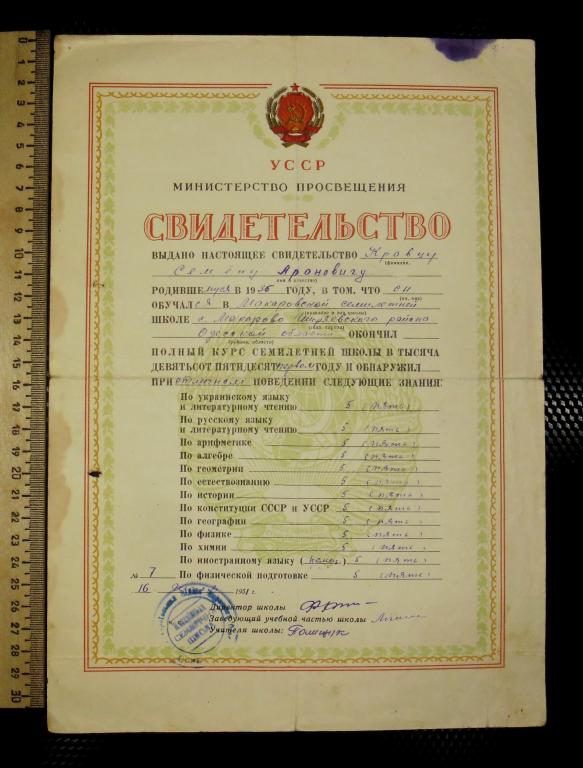 УССР
МИНИСТЕРСТВО ПРОСВЕЩЕНИЯ
СВИДЕТЕЛЬСТВО
ВЫДАНО НАСТОЯЩЕЕ СВИДЕТЕЛЬСТВО Кравцу
(фамилия,
Семёну Ароновичу
имя и отчество)
РОДИВШЕМУСЯ В 1936 ГОДУ, В ТОМ, ЧТО ОН
(он, она)
ОБУЧАЛСЯ В Макаровской семилетней
(название и вид школы)
ШКОЛЕ с. Макарово Ширяевского района
(села, города)
Одесской области ОКОНЧИЛ
(района, области)
ПОЛНЫЙ КУРС СЕМИЛЕТНЕЙ ШКОЛЫ В ТЫСЯЧА
ДЕВЯТЬСОТ ПЯТЬДЕСЯТ первом ГОДУ И ОБНАРУЖИЛ
ПРИ отличном ПОВЕДЕНИИ СЛЕДУЮЩИЕ ЗНАНИЯ:
По украинскому языку
и литературному чтению 5 (пять)
По русскому языку
и литературному чтению 5 (пять)
По арифметике 5 (пять)
По алгебре 5 (пять)
По геометрии 5 (пять)
По естествознанию 5 (пять)
По истории 5 (пять)
По конституции СССР и УССР 5 (пять)
По географии 5 (пять)
По физике 5 (пять)
По химии 5 (пять)
По иностранному языку (немец.) 5 (пять)
№ 7 По физической подготовке 5 (пять)
16 1951 г.
Директор школы
Заведующий учебной частью школы
Учителя школы:
0 1 2 3 4 5 6 7 8 9 10 11 12 13 14 15 16 17 18 19 20 21 22 23 24 25 26 27 28 29 30